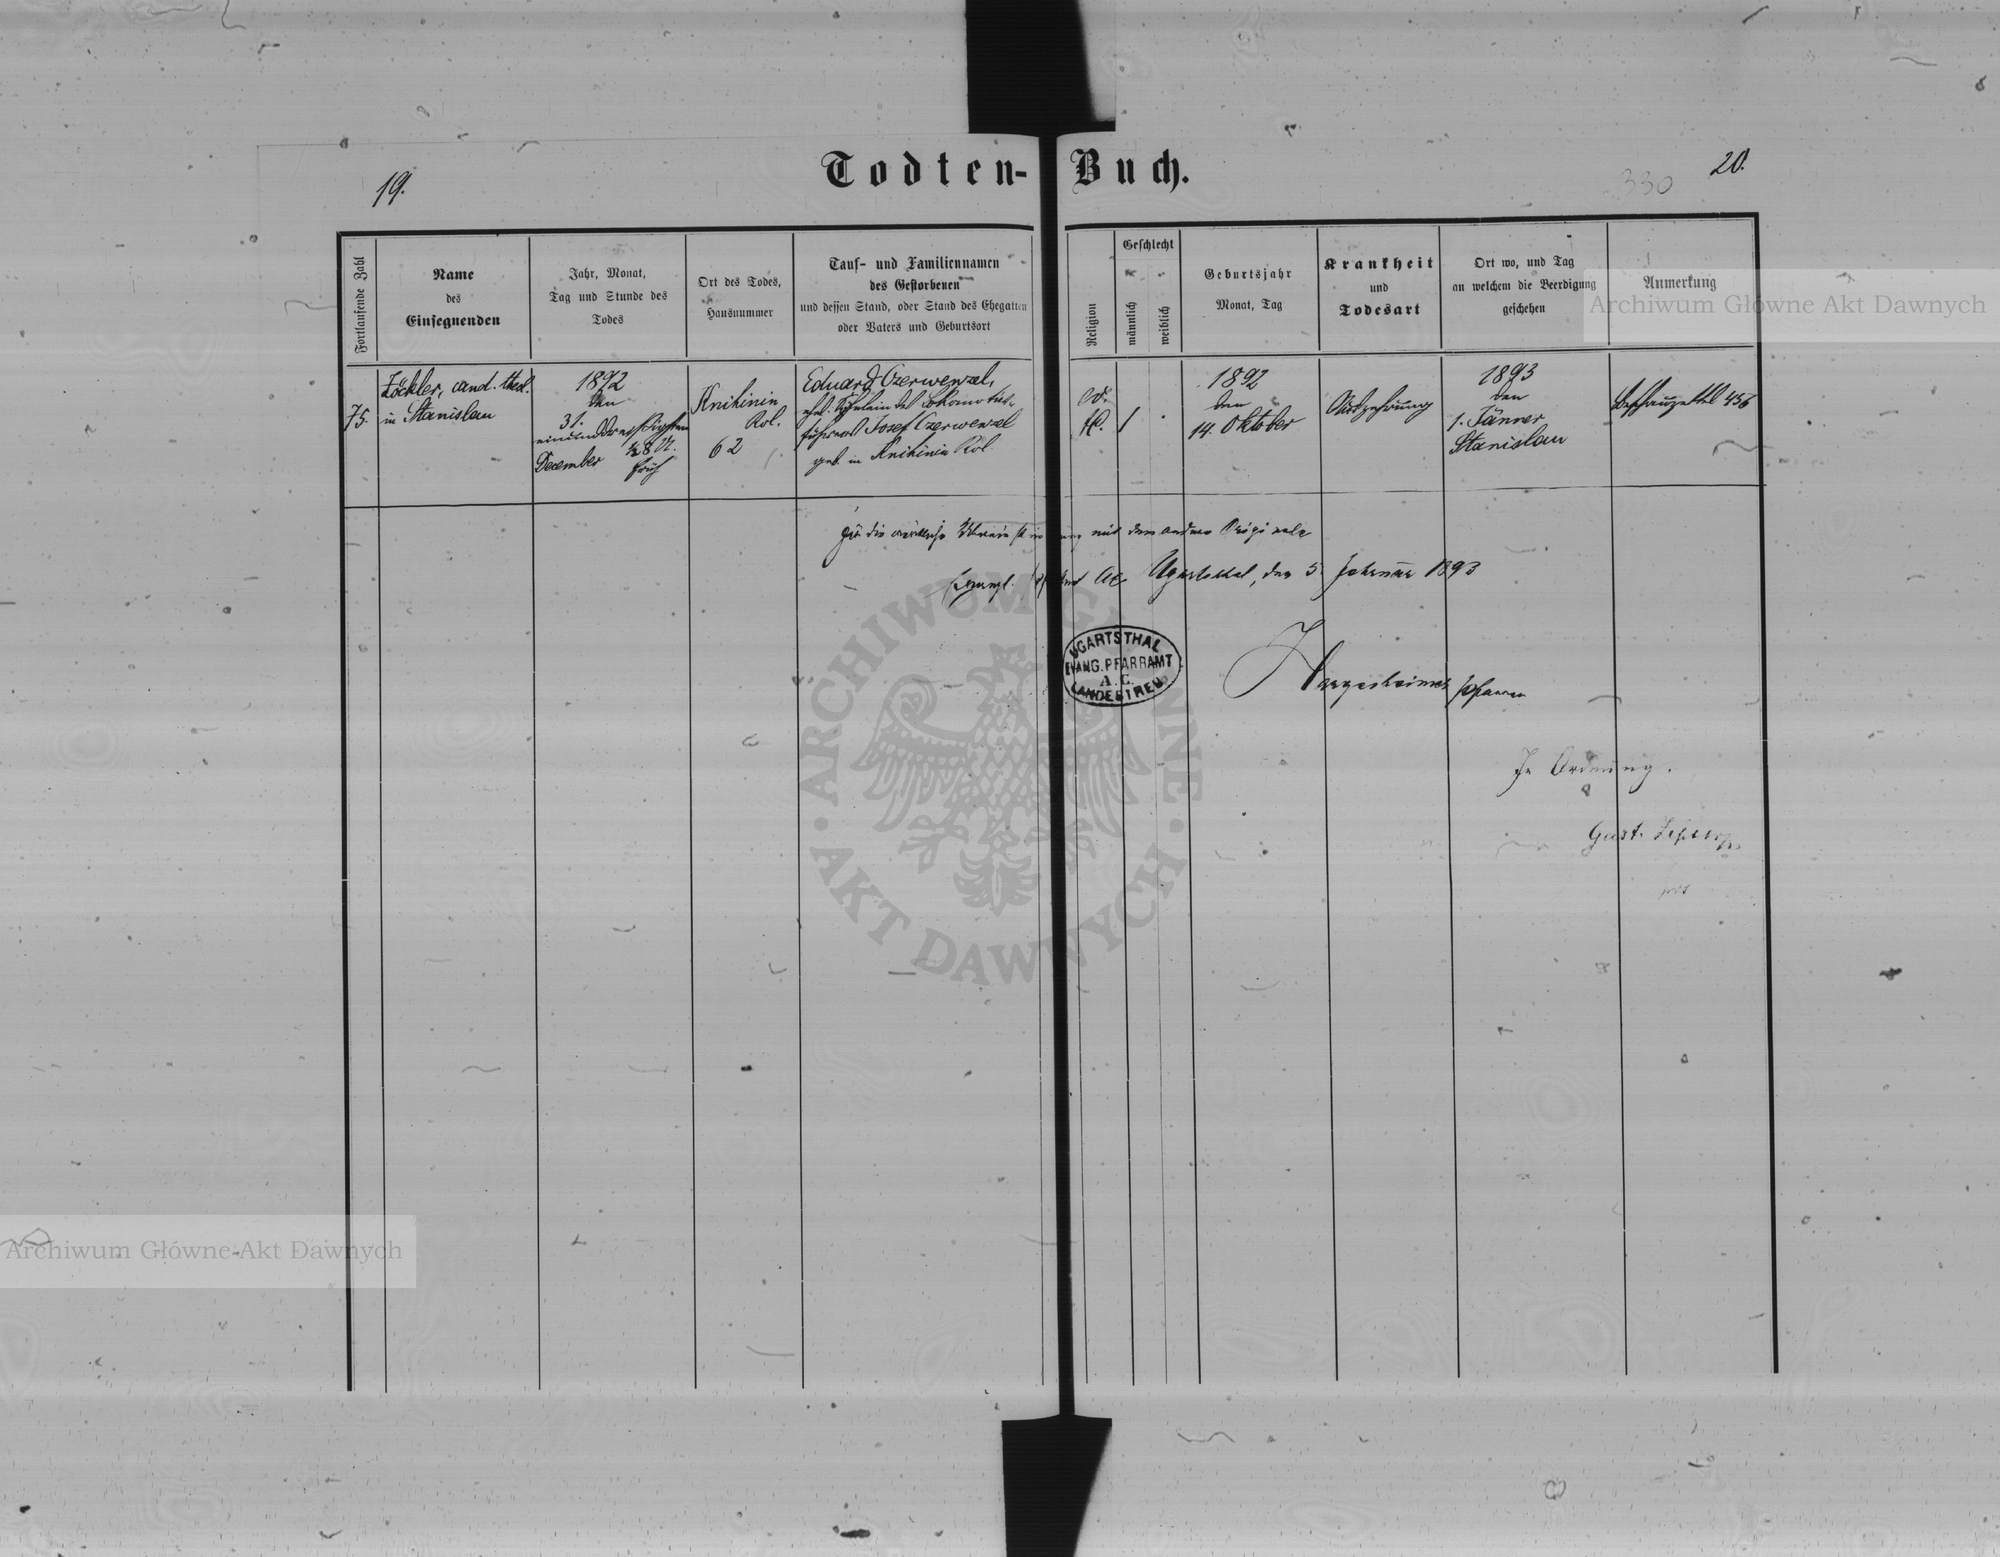 19.
Todten-Buch.
330
20.
Fortlaufende Zahl
Name
des
Einsegnenden
Jahr, Monat,
Tag und Stunde des
Todes
Ort des Todes,
Hausnummer
Tauf- und Familiennamen
des Gestorbenen
und dessen Stand, oder Stand des Ehegatten
oder Vaters und Geburtsort
Religion
Geschlecht
männlich
weiblich
Geburtsjahr
Monat, Tag
Krankheit
und
Todesart
Ort wo, und Tag
an welchem die Beerdigung
geschehen
Anmerkung
Archiwum Główne Akt Dawnych
75.
Zöckler, cand. theol.
in Stanislau
1892
den
31.
einunddreißigsten
December ½8 U.
früh
Knihinin
Kol.
62
Eduard Czerwenzel,
ehel. Söhnlein des Lokomotiv-
führers Josef Czerwenzel
geb. in Knihinin Kol.
1
1892
den
14. Oktober
Auszehrung
1893
den
1. Jänner
Stanislau
Beschauzettel 456
Für die wörtliche Übereinstimmung mit dem Original
Ugartsthal, den 5. Februar 1893
UGARTSTHAL
EVANG. PFARRAMT
A. C.
LANDESTREU
Hargesheimer Pfarrer
In Ordnung.
Gust.
ARCHIWUM GŁÓWNE
AKT DAWNYCH
Archiwum Główne Akt Dawnych